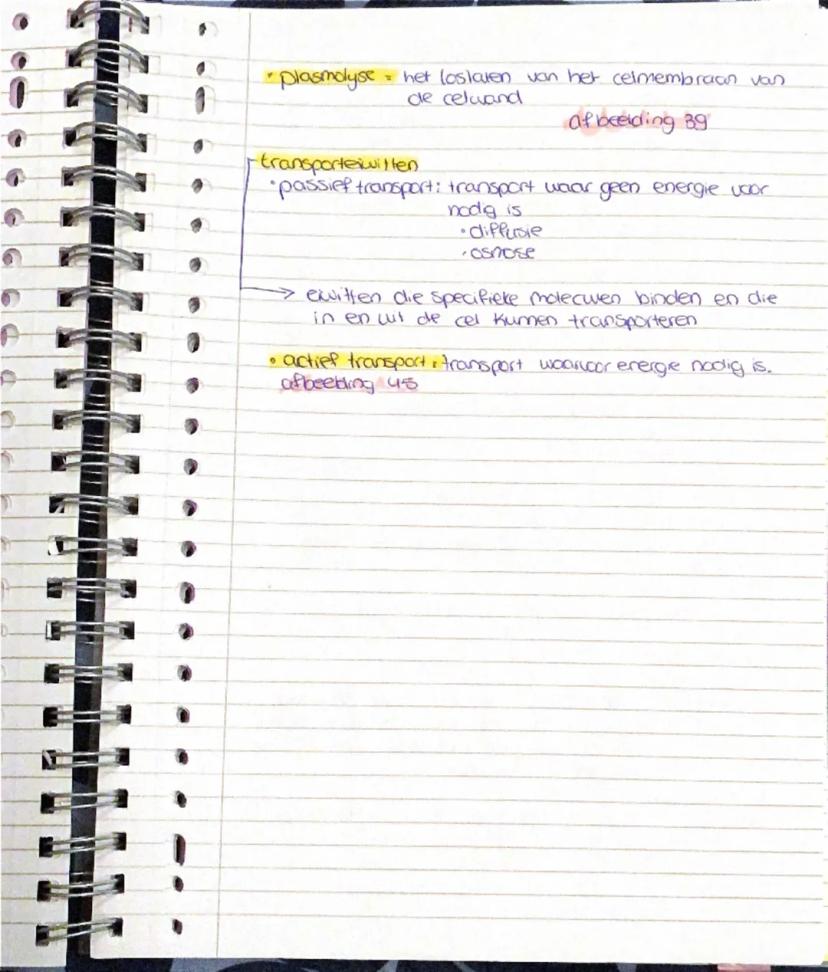 • plasmolyse = het loslaten van het celmembraan van
de celwand
afbeelding 39
transporteiwitten
• passief transport: transport waar geen energie voor
nodig is
• diffusie
• osmose
→ eiwitten die specifieke moleculen binden en die
in en uit de cel kunnen transporteren
• actief transport: transport waarvoor energie nodig is.
afbeelding 45